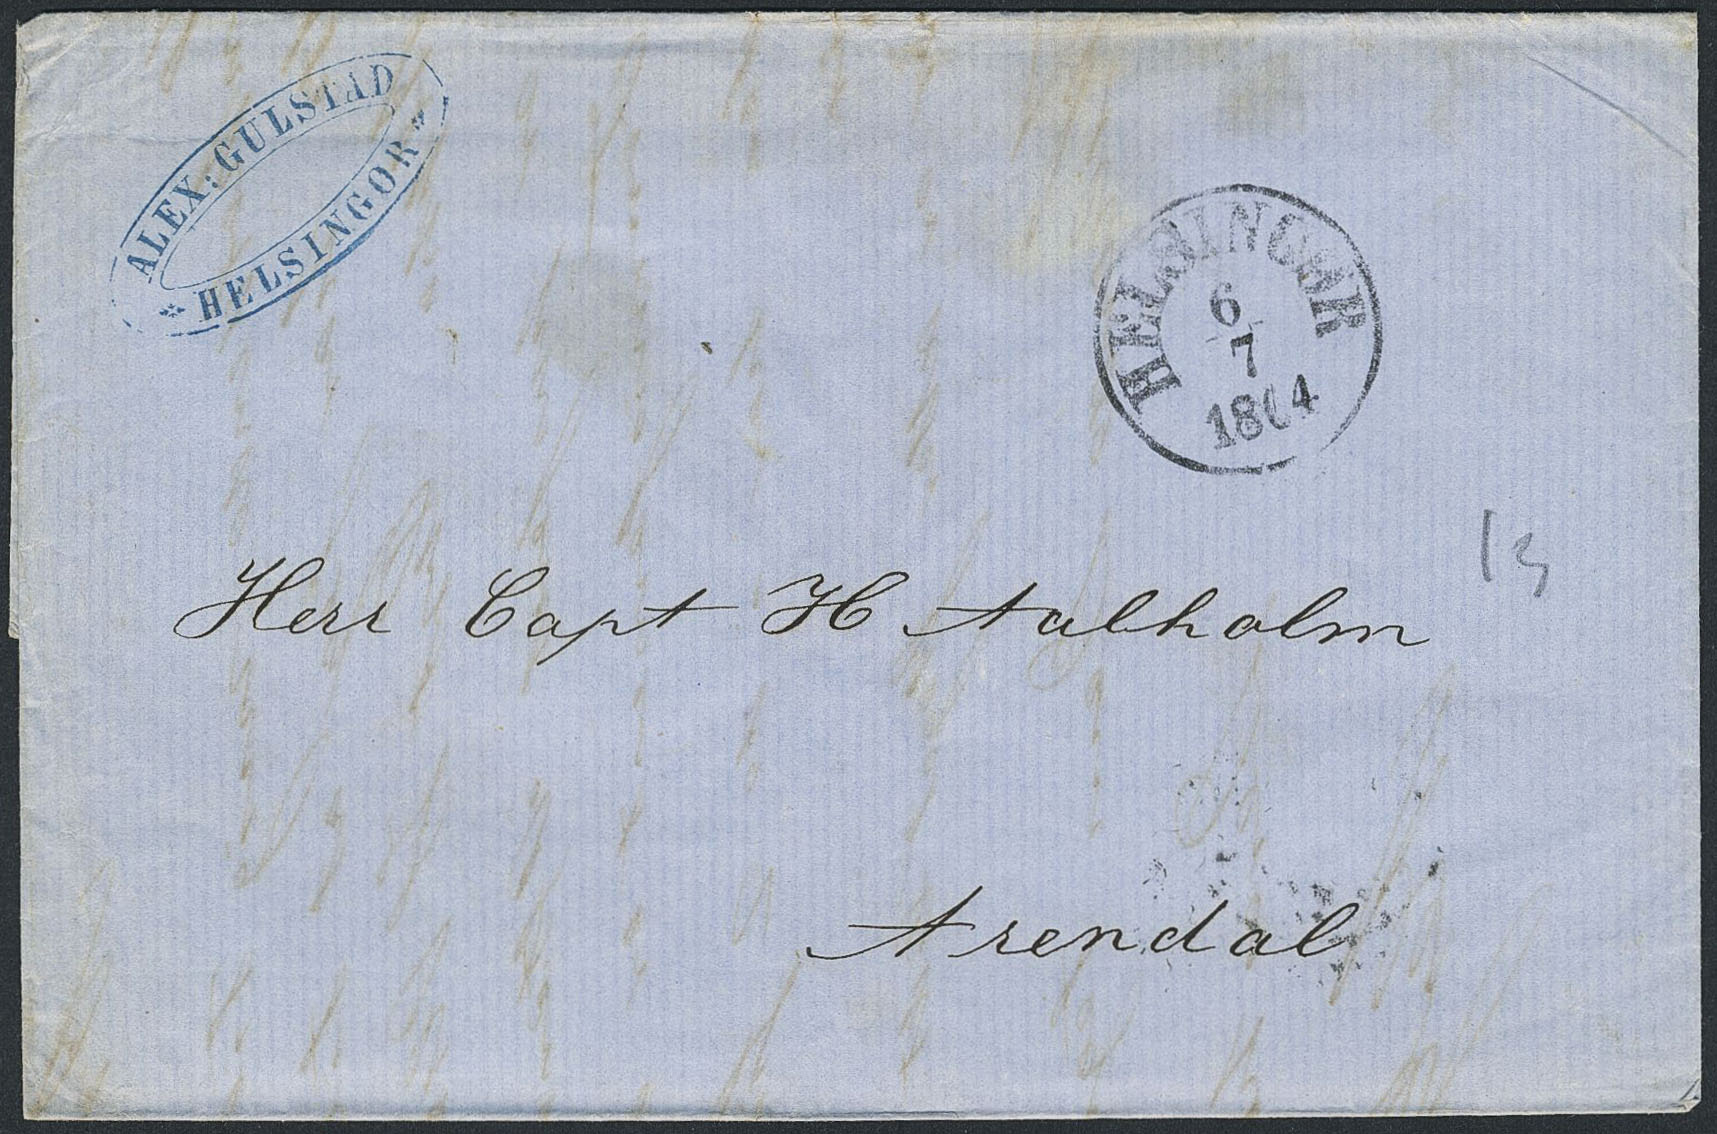 ALEX: GULSTAD
* HELSINGOR *
HELSINGØR
6
7
1864
13
Herr Capt H Aalholm
Arendal